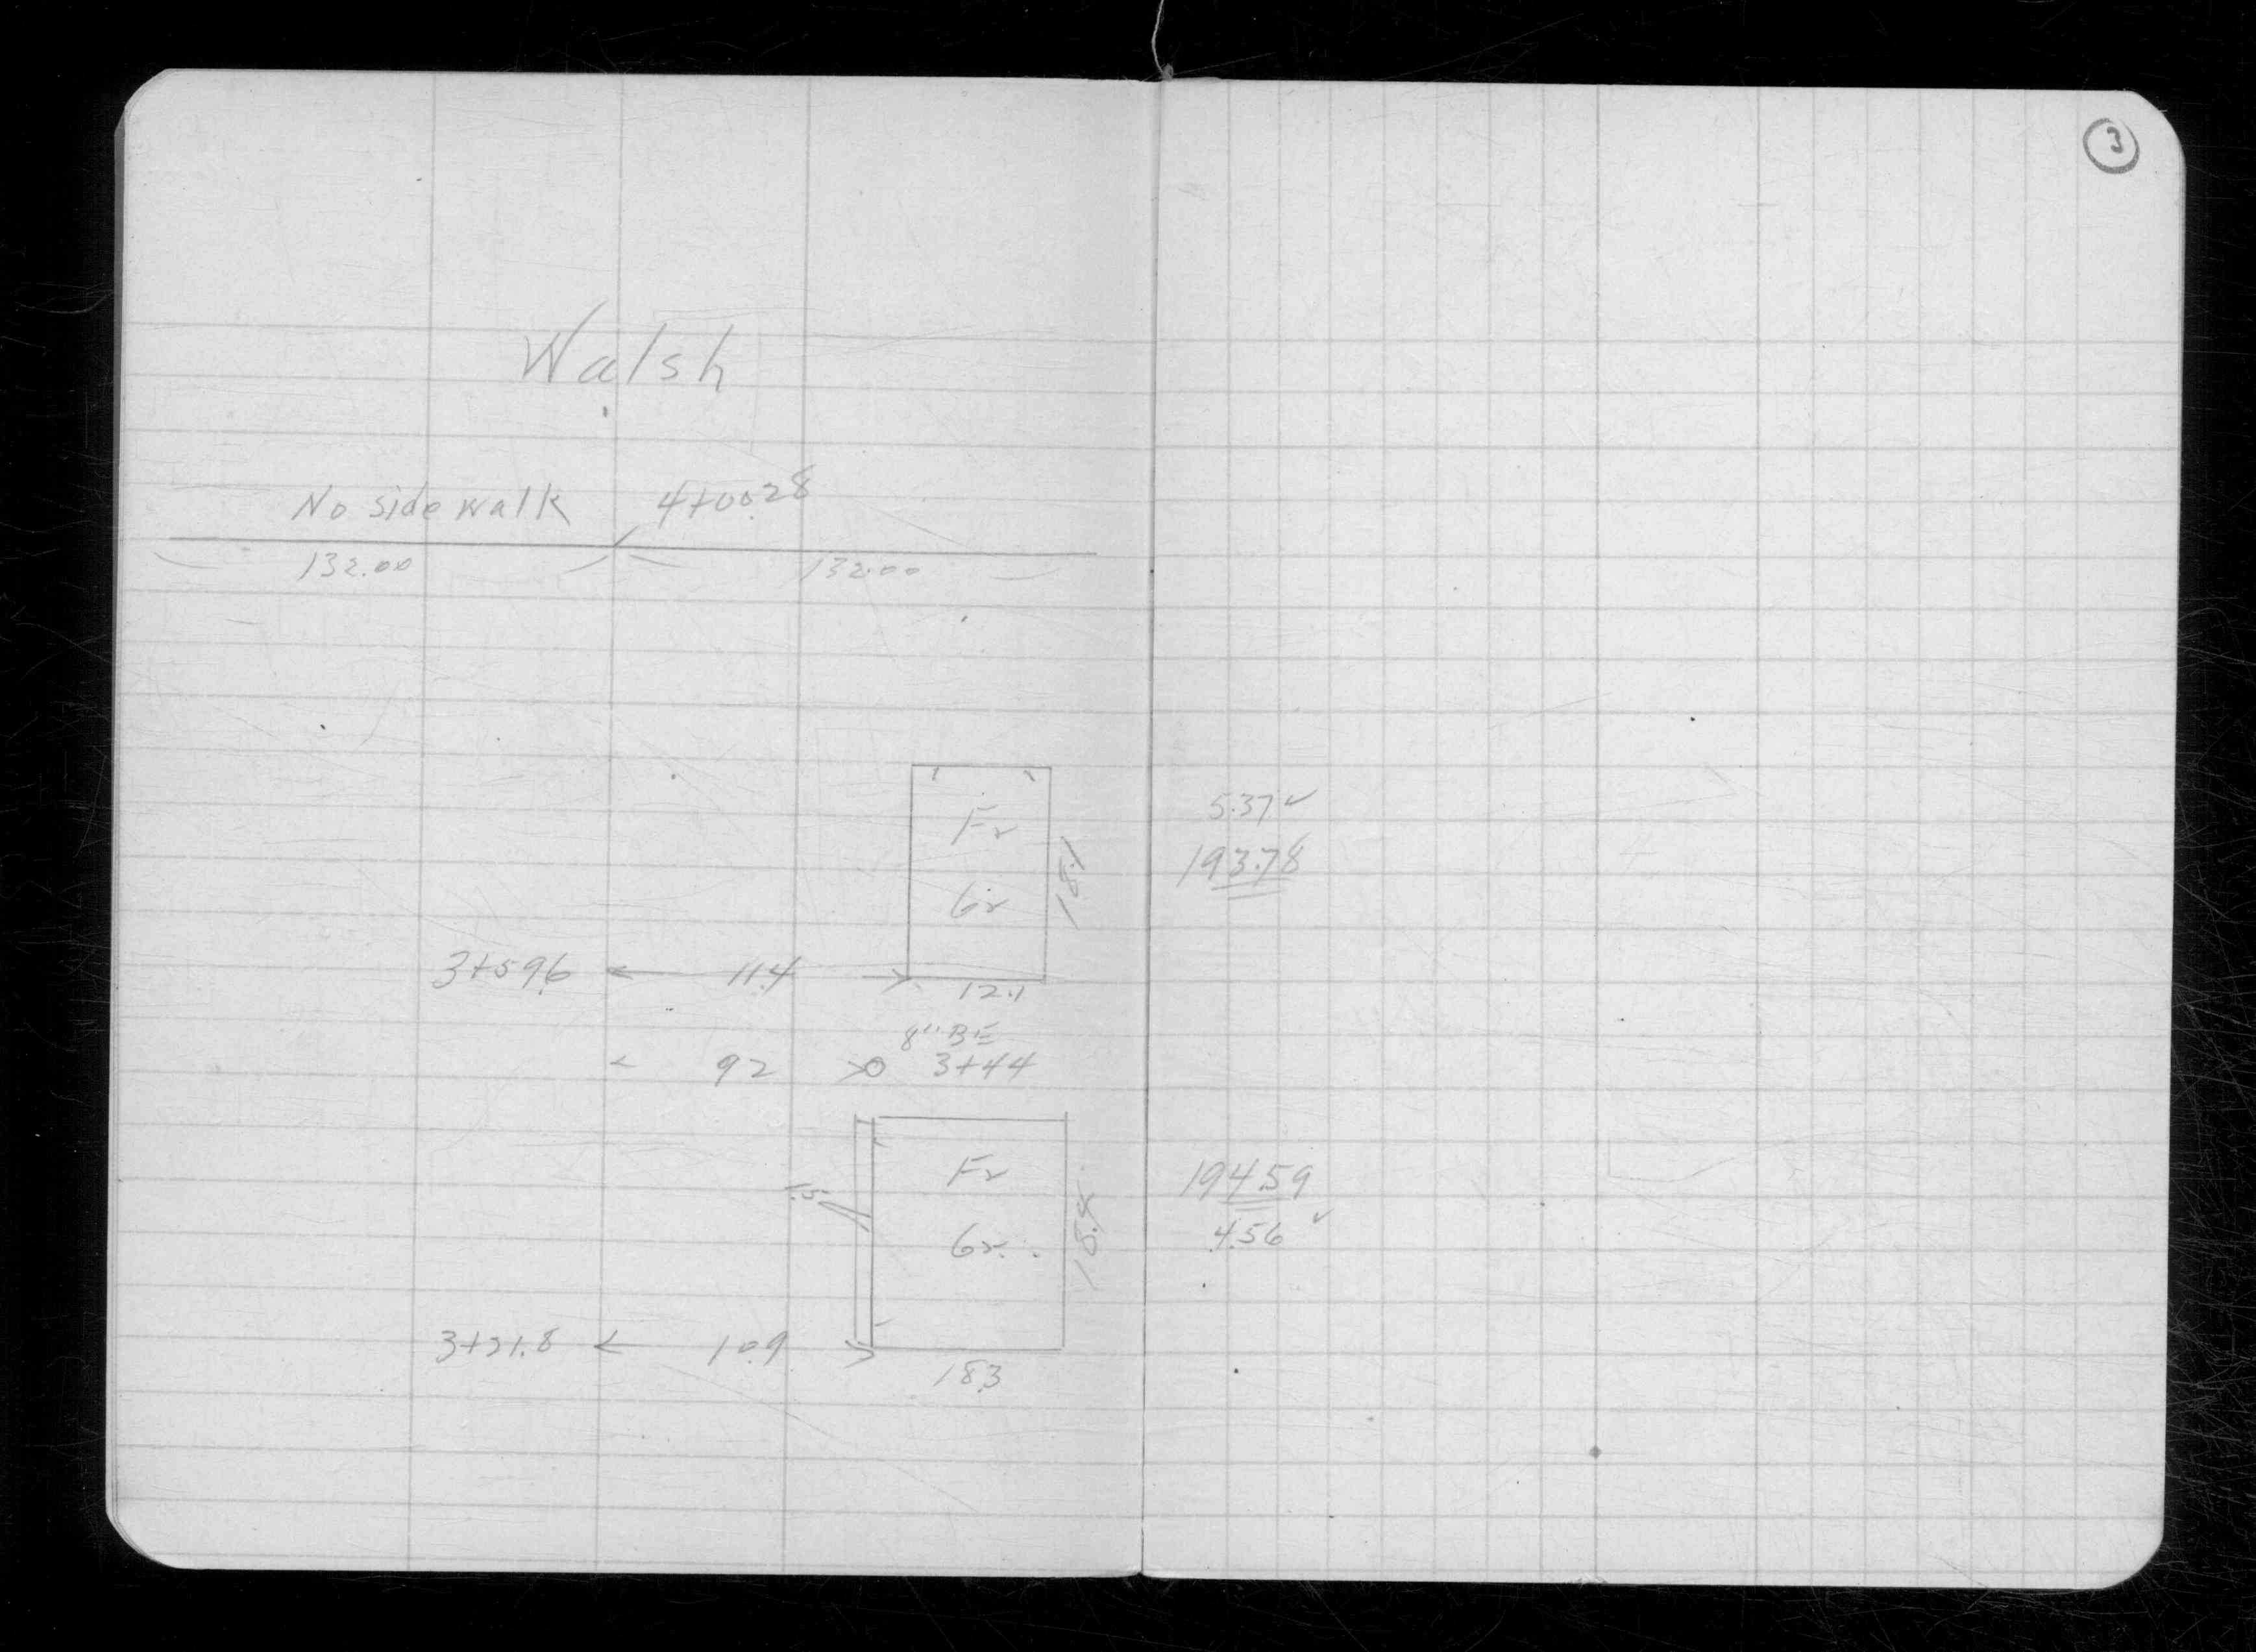 3
Walsh
No sidewalk 4+00.28
132.00 132.00
Fr
Gr
18.1
5.37✓
193.78
3+59.6 11.4
12.1
8" BE
92 3+44
Fr
Gr.
18.8
194.59
4.56 ✓
3+21.8 10.9
18.3